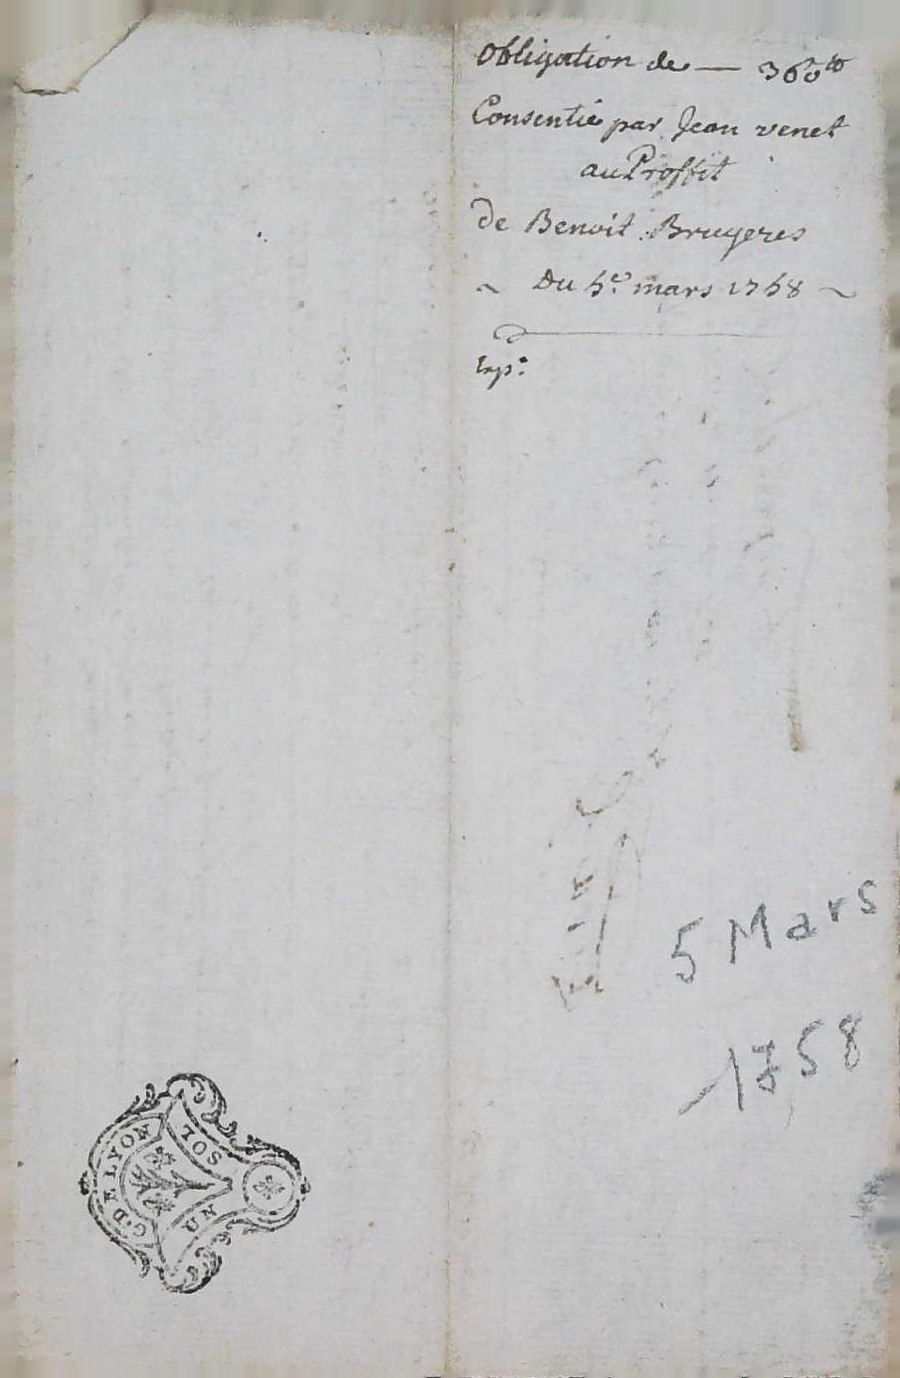 Obligation de — 360tt
Consentie par Jean venet
au Proffit
de Benoit Bruyeres
~ Du 5e. mars 1758 ~
Exp:
5 Mars
1758
G. DE LYON
UN SOL